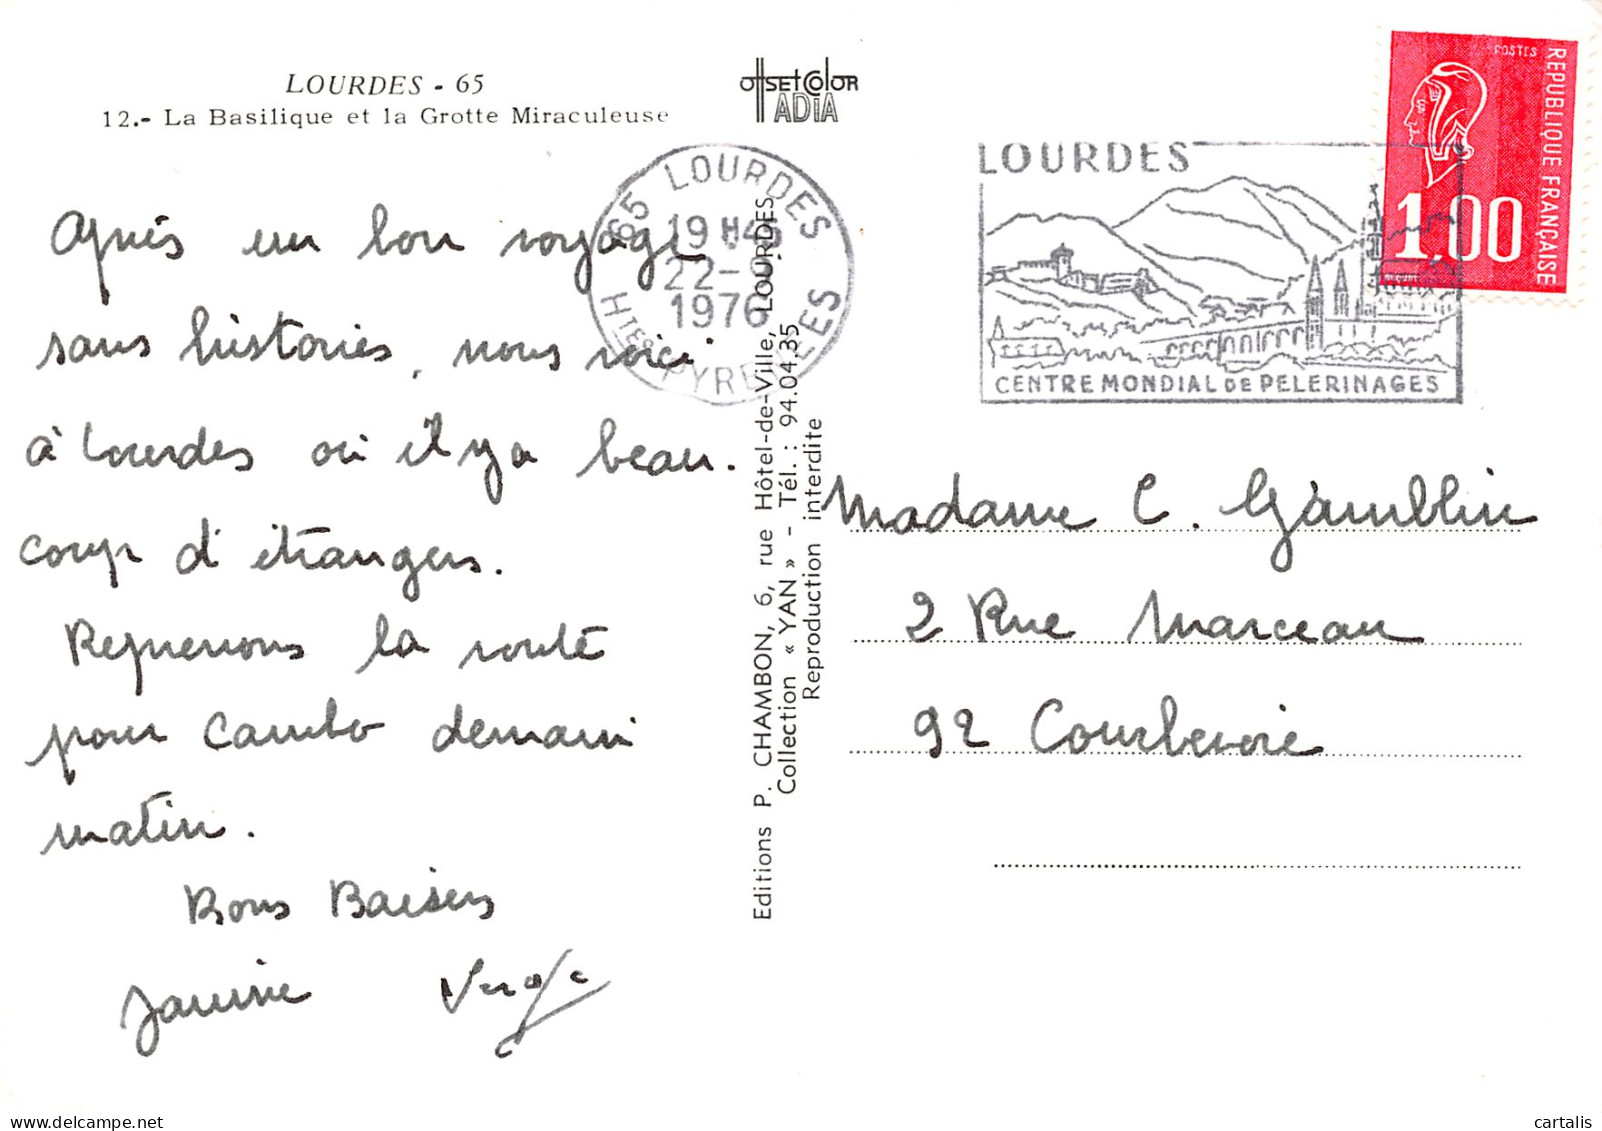 LOURDES - 65
12.- La Basilique et la Grotte Miraculeuse
OffsetColor
ADIA
Après un bon voyage
sans histoires, nous voici
à Lourdes où il y a beau-
coup d'étrangers.
Reprenons la route
pour Cambo demain
matin.
Bons Baisers
Janine
65 LOURDES
19 H45
22-
1976
HTES PYRENEES
Editions P. CHAMBON, 6, rue Hôtel-de-Ville, LOURDES
Collection « YAN » - Tél. : 94.04.35
Reproduction interdite
LOURDES
CENTRE MONDIAL DE PELERINAGES
POSTES
REPUBLIQUE FRANÇAISE
1,00
Madame C. Gamblin
2 Rue Marceau
92 Courbevoie
cartalis